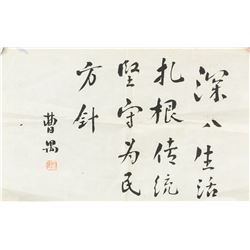 深入生活
扎根传统
坚守为民
方针
曹禺